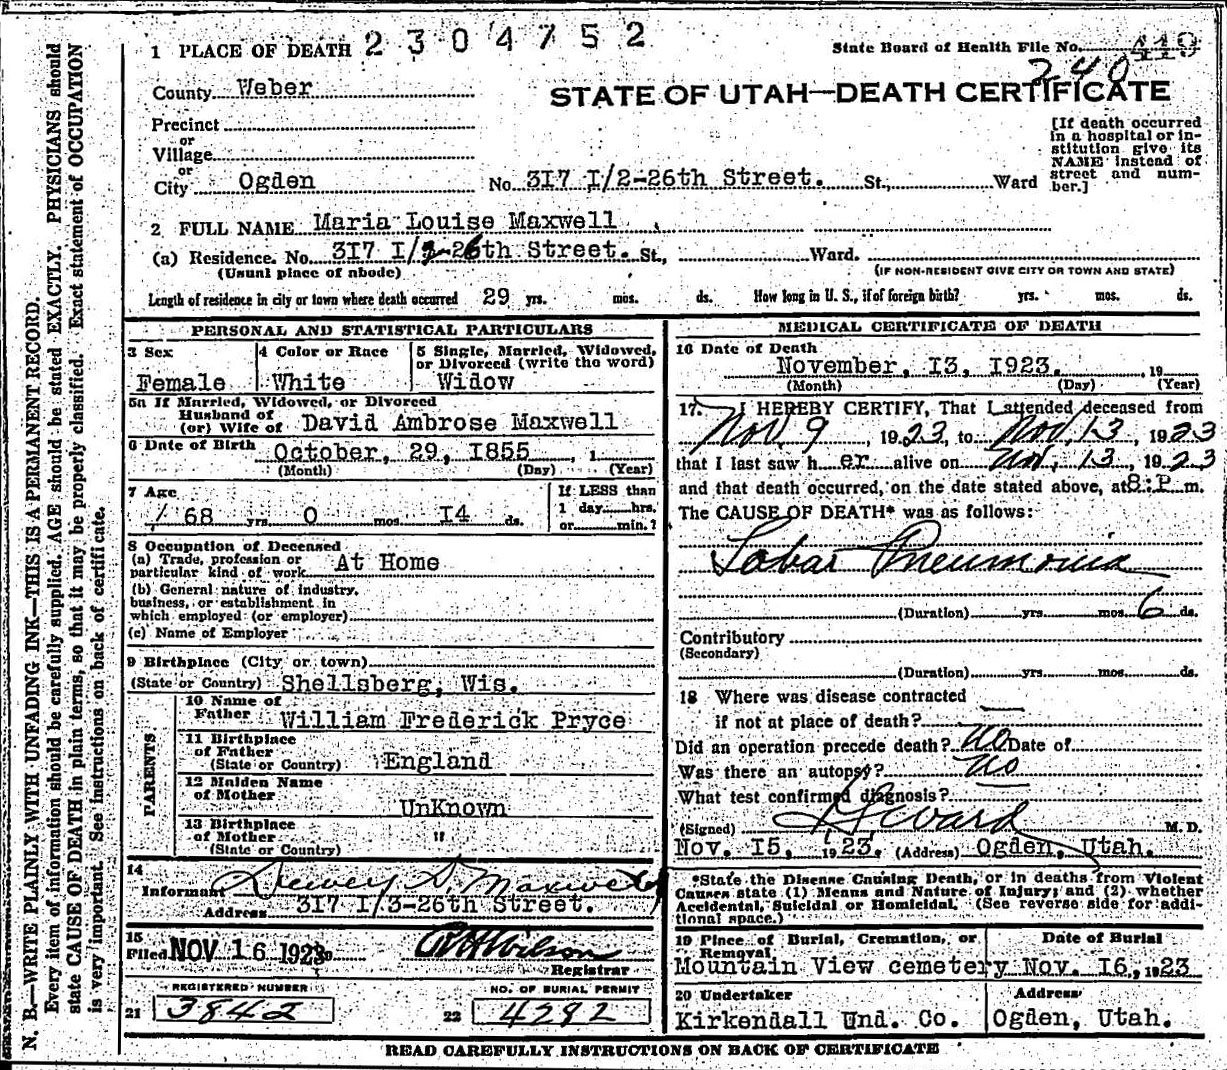 N. B.—WRITE PLAINLY WITH UNFADING INK—THIS IS A PERMANENT RECORD.
Every item of information should be carefully supplied. AGE should be stated EXACTLY. PHYSICIANS should
state CAUSE OF DEATH in plain terms, so that it may be properly classified. Exact statement of OCCUPATION
is very important. See instructions on back of certificate.
1 PLACE OF DEATH 2304752
State Board of Health File No. 419
240
County Weber
STATE OF UTAH—DEATH CERTIFICATE
Precinct
or
Village
or
City Ogden No. 317 1/2-26th Street. St., Ward
[If death occurred
in a hospital or in-
stitution give its
NAME instead of
street and num-
ber.]
2 FULL NAME Maria Louise Maxwell
(a) Residence. No. 317 1/2-26th Street. St., Ward.
(Usual place of abode) (IF NON-RESIDENT GIVE CITY OR TOWN AND STATE)
Length of residence in city or town where death occurred 29 yrs. mos. ds. How long in U. S., if of foreign birth? yrs. mos. ds.
PERSONAL AND STATISTICAL PARTICULARS
3 Sex
Female
4 Color or Race
White
5 Single, Married, Widowed,
or Divorced (write the word)
Widow
5a If Married, Widowed, or Divorced
Husband of
(or) Wife of David Ambrose Maxwell
6 Date of Birth October, 29, 1855 , 1
(Month) (Day) (Year)
7 Age
68 yrs. 0 mos. 14 ds.
If LESS than
1 day hrs.
or min.?
8 Occupation of Deceased
(a) Trade, profession or
particular kind of work At Home
(b) General nature of industry,
business, or establishment in
which employed (or employer)
(c) Name of Employer
9 Birthplace (City or town)
(State or Country) Shellsberg, Wis.
PARENTS
10 Name of
Father William Frederick Pryce
11 Birthplace
of Father
(State or Country) England
12 Maiden Name
of Mother
UnKnown
13 Birthplace
of Mother "
(State or Country)
14
Informant Dewey D. Maxwell
Address 317 1/3-26th Street.
15
Filed NOV 16 1923 Wilson
Registrar
REGISTERED NUMBER
21 3842
NO. OF BURIAL PERMIT
22 4292
MEDICAL CERTIFICATE OF DEATH
16 Date of Death
November, 13, 1923. , 19
(Month) (Day) (Year)
17. I HEREBY CERTIFY, That I attended deceased from
Nov. 9, 1923, to Nov. 13, 1923
that I last saw her alive on Nov. 13, 1923
and that death occurred, on the date stated above, at 8:P m.
The CAUSE OF DEATH* was as follows:
Lobar Pneumonia
(Duration) yrs. mos. 6 ds.
Contributory
(Secondary)
(Duration) yrs. mos. ds.
18 Where was disease contracted
if not at place of death?
Did an operation precede death? No Date of
Was there an autopsy? No
What test confirmed diagnosis?
(Signed) M. D.
Nov. 15, 1923. (Address) Ogden, Utah.
*State the Disease Causing Death, or in deaths from Violent
Causes state (1) Means and Nature of Injury; and (2) whether
Accidental, Suicidal or Homicidal. (See reverse side for addi-
tional space.)
19 Place of Burial, Cremation, or
Removal
Date of Burial
Mountain View cemetery Nov. 16, 1923
20 Undertaker
Kirkendall Und. Co.
Address
Ogden, Utah.
READ CAREFULLY INSTRUCTIONS ON BACK OF CERTIFICATE